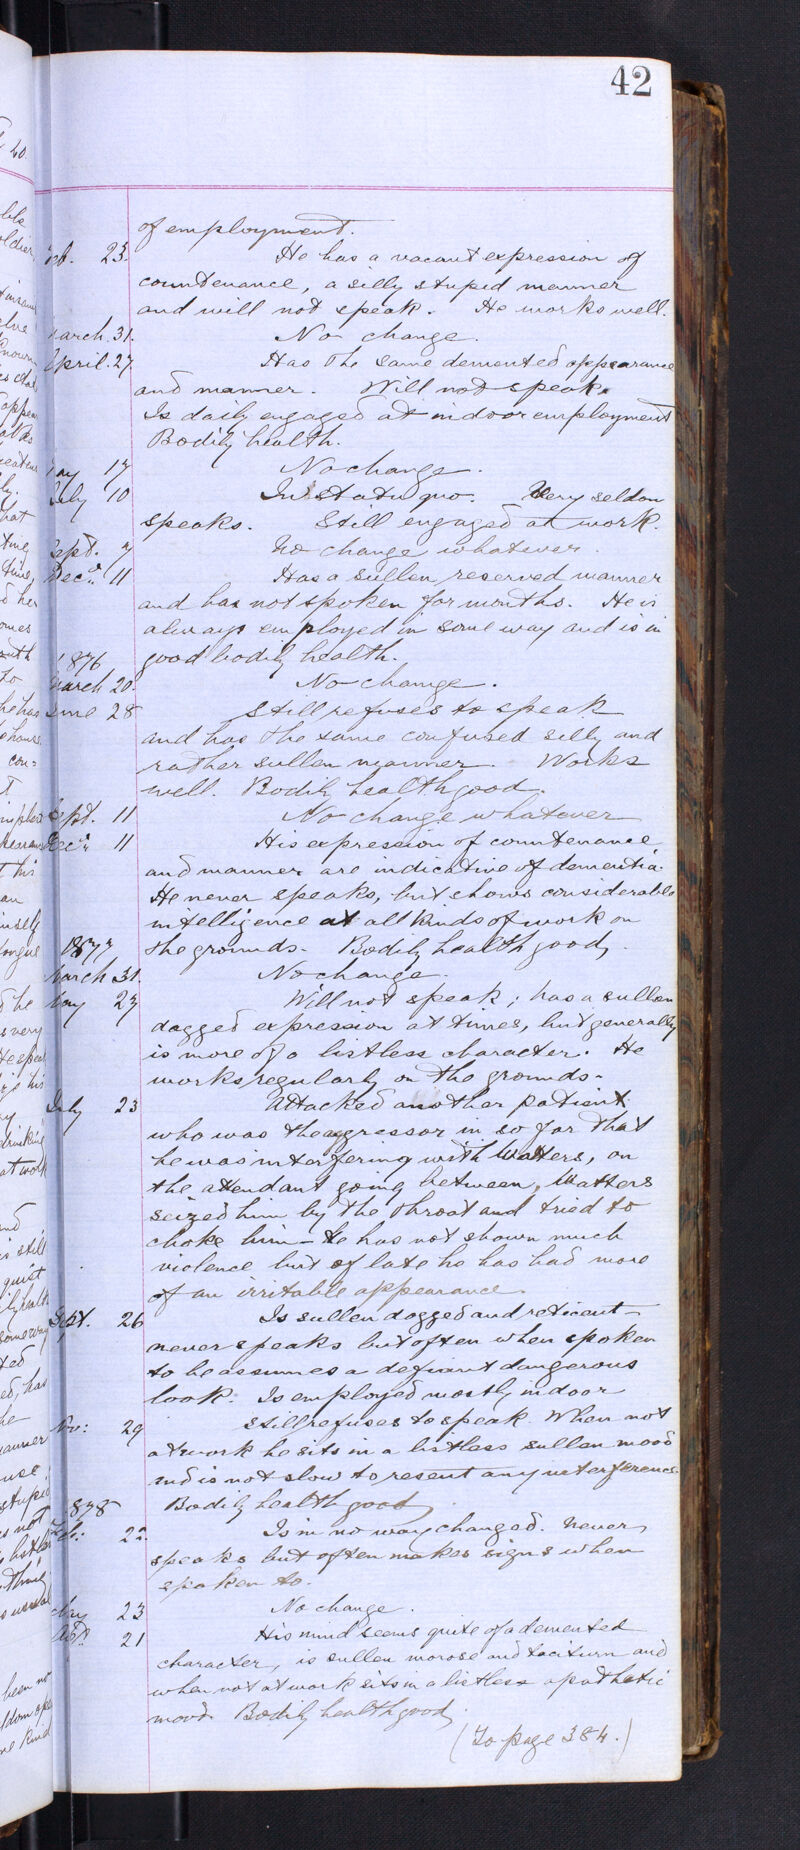 42
of employment.
Feb. 23. He has a vacant expression of
countenance, a silly stupid manner
and will not speak. He works well.
March 31. No change.
April. 27. Has the same demented appearance
and manner. Will not speak.
Is daily engaged at indoor employment
Bodily health.
May 17 No change.
July 10 In statu quo. Very seldom
speaks. Still engaged at work.
Sept. 7 No change whatever.
Decr. 11 Has a sullen, reserved manner
and has not spoken for months. He is
always employed in some way and is in
1876 good bodily health.
March 20. No change.
June 28 Still refuses to speak
and has the same confused silly and
rather sullen manner. Works
well. Bodily health good.
Sept. 11 No change whatever
Decr. 11 His expression of countenance
and manner are indicative of dementia.
He never speaks, but shows considerable
intelligence at all kinds of work on
1877 the grounds. Bodily health good.
March 31. No change.
May 27 Will not speak; has a sullen
dogged expression at times, but generally
is more of a listless character. He
works regularly on the grounds.
July 23 Attacked another patient
who was the aggressor in so far that
he was interfering with Watters, on
the attendant going between, Watters
seized him by the throat and tried to
choke him - He has not shown much
violence but of late he has had more
of an irritable appearance.
Sept. 26 Is sullen dogged and reticent -
never speaks but often when spoken
to he assumes a defiant dangerous
look. Is employed mostly indoor
Nov: 29 Still refuses to speak. When not
at work he sits in a listless sullen mood
and is not slow to resent any interference.
1878 Bodily health good
Feb: 22. Is in no way changed. Never
speaks but often makes signs when
spoken to.
May 23 No change.
21 His mind seems quite of a demented
character, is sullen morose and taciturn and
when not at work sits in a listless apathetic
mood. Bodily health good.
(To page 384.)